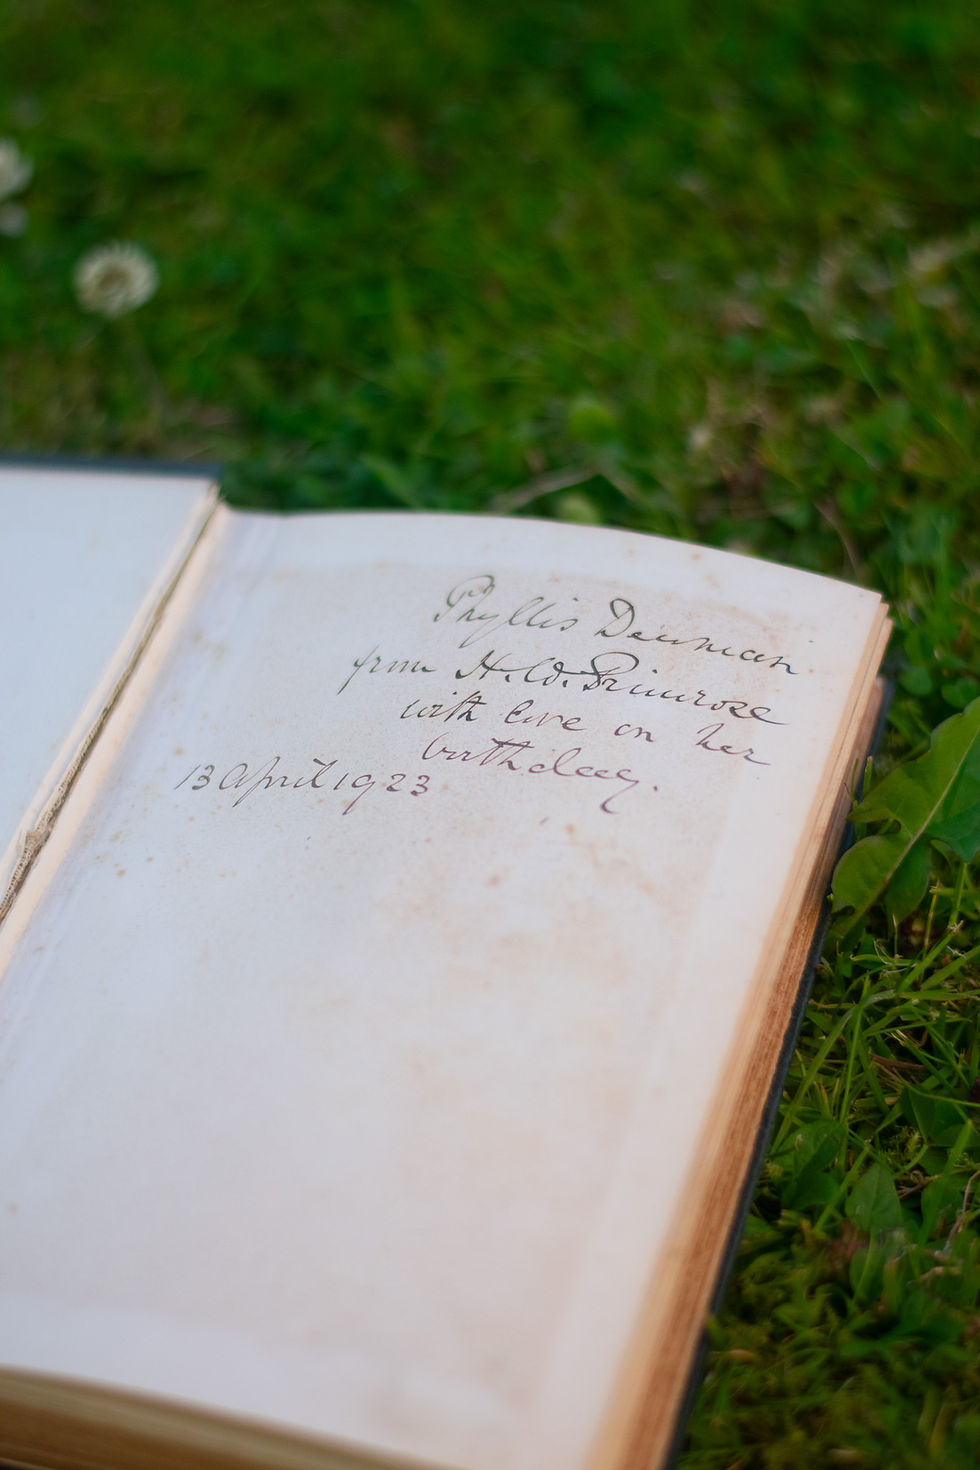 Phyllis Denman
from H. W. Primrose
with love on her
birthday.
13 April 1923